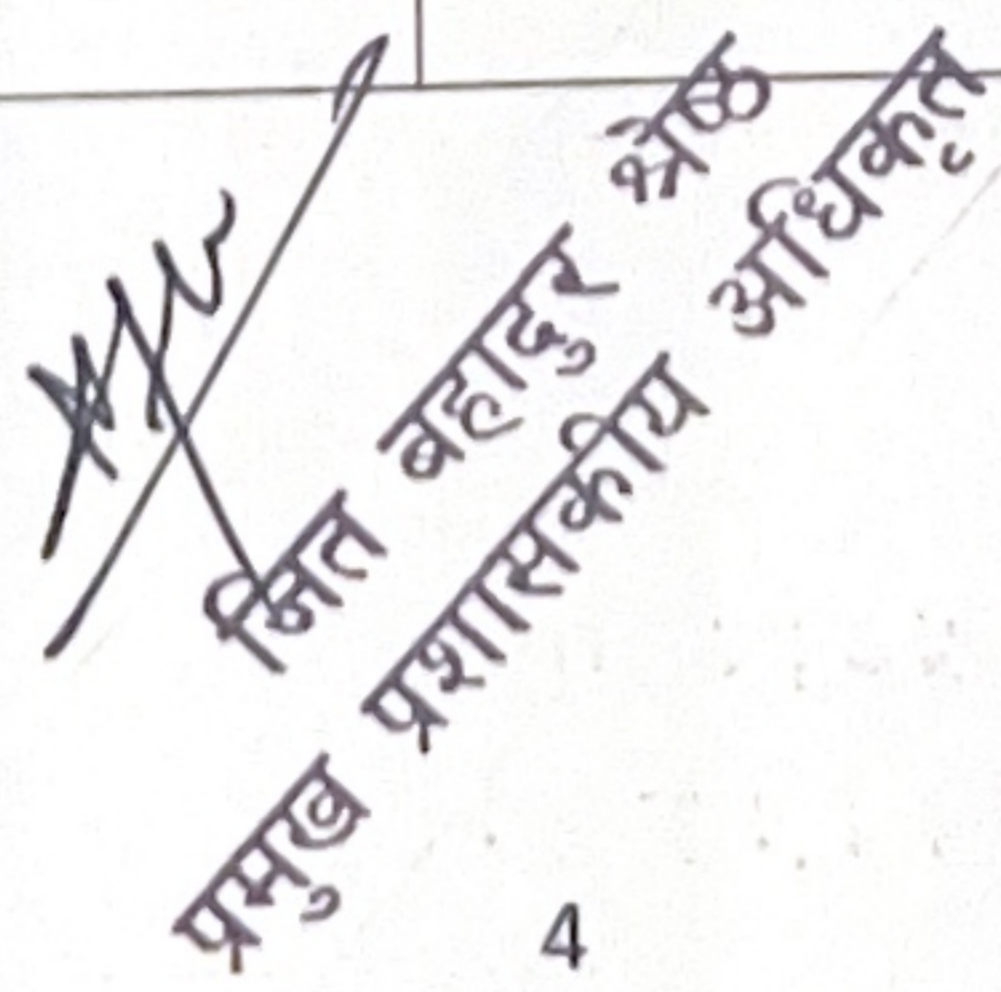 जित बहादुर श्रेष्ठ
प्रमुख प्रशासकीय अधिकृत
4